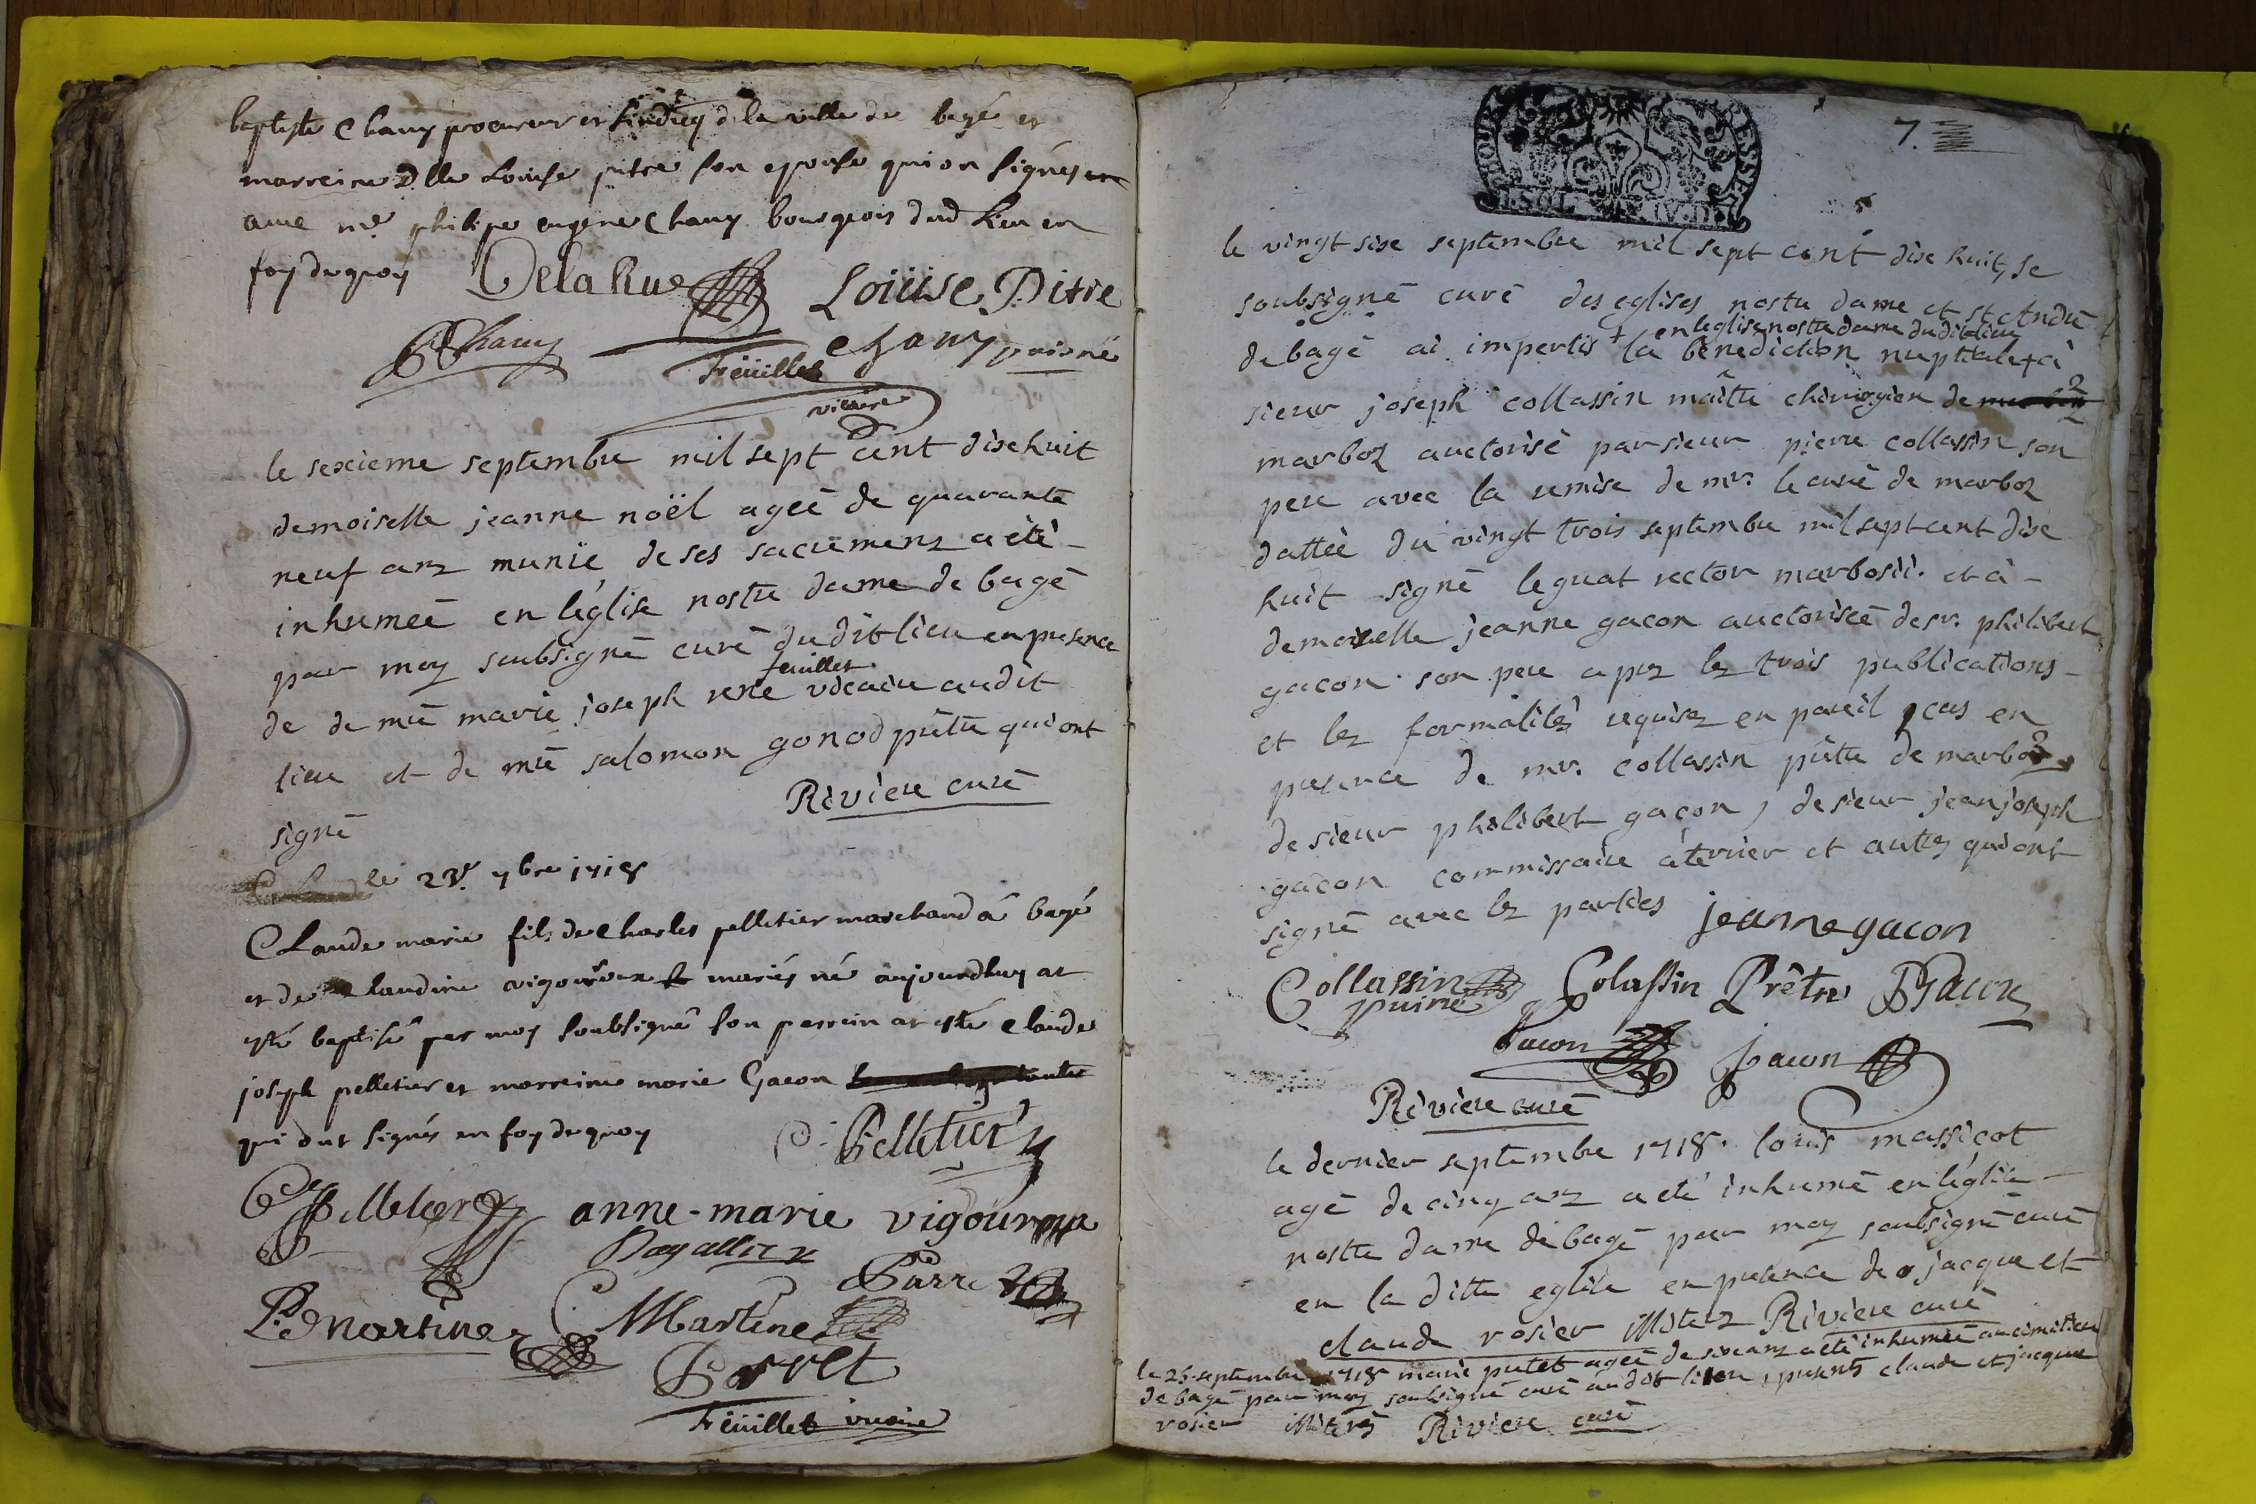 baptiste Chany procureur et sindicq de la ville de bagé et
marreine Dlle Louise pitre son epouse qui on signés
avec mr. philipe eugene Chany bourgeois dud lieu en
foy dequoy Delarue Loüise Pitre
Chany Chany puisné
Feüillet
vicaire
le sexieme septembre mil sept cent disehuit
demoiselle jeanne noël ageé de quarante
neuf anz munië de ses sacremenz a été
inhumeé en léglise nostre dame de bagé
par moy soubsigné curé dudit lieu en presence
feuillet
de de mre marie joseph rene vicaire audit
lieu et de mre salomon gonod prêtre qui ont
signé Riviere curé
le 23. 7bre 1718
Claude marie fils de Charles pelletier marchand a bagé
et de Claudine vigouroux mariés né aujourdhuy at
esté baptisé par moy soubsigné son parrein at esté Claude
joseph pelletier et marreine marie Gacon
qui ont signés en foy dequoy C. Pelletier
Pelletier anne-marie vigouroux
Parret
P. Martine C Martine
Borret
Feüillet vicaire
7.
le vingt sise septembre mil sept cent dise huit, je
soubsigné curé des eglises nostre dame et st André
en leglise nostre dame dudit lieu
de bagé ai impertis + la benediction nuptiale + à
sieur joseph collassin maître chirurgien de
marboz auctorisé par sieur pierre collassin son
pere avec la remise de mr. le curé de marboz
datteé du vingt trois septembre mil sept cent dise
huit signé leguat rector marbosii. et à
demoiselle jeanne gacon auctoriseé de sr. philibert
gacon son pere aprez lez trois publications
et lez formalitéz requisez en pareil cas en
presence de mr. collassin prêtre de marboz,
de sieur philibert gacon, de sieur jean joseph
gacon commissaire à terrier et autrez qui ont
signé avec lez parties jeanne gacon
Collassin Colassin Prêtre PGacon
puiné
Gacon Gacon
Riviere curé
le dernier septembre 1718. louis massicot
agé de cinq anz a été inhumé en léglise
nostre dame de bagé par moy soubsigné curé
en la ditte eglise en presence de jacque et
claude rosier illiterez Riviere curé
le 26 septembre 1718 marie putet ageé de sixe anz a été inhumeé au cimetiere
de bagé par moy soubsigné curé audit lieu, presents claude et jacque
rosier illiterés Riviere curé